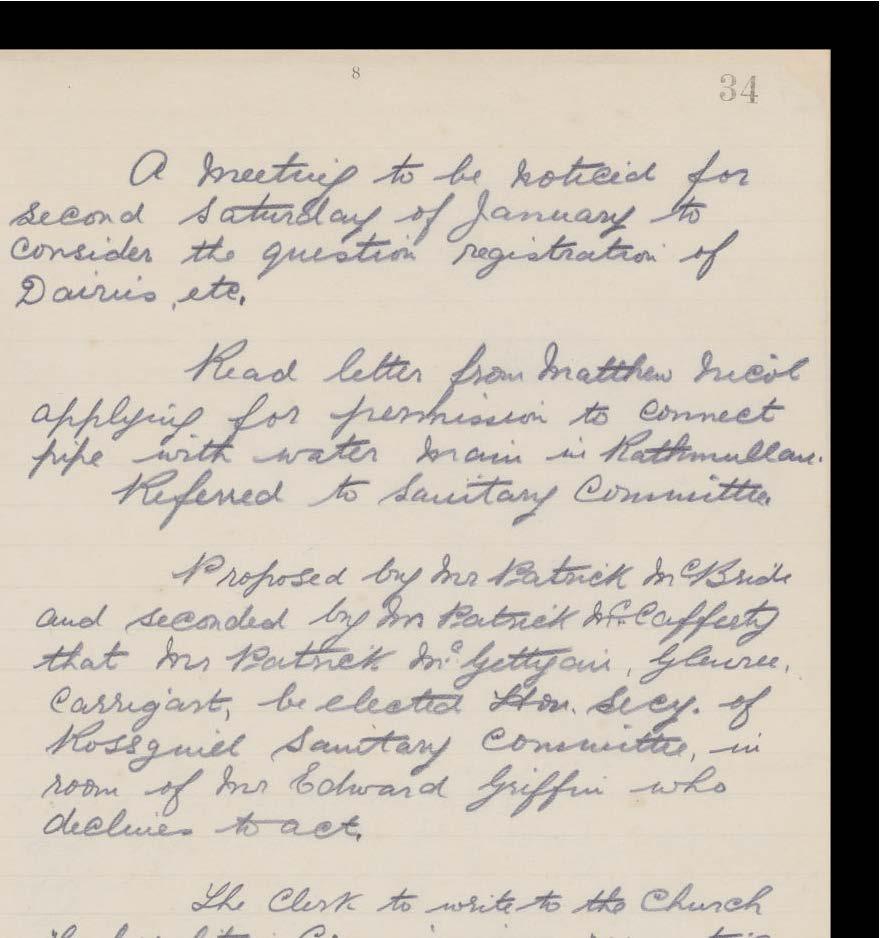 8
34
A Meeting to be noticed for
second Saturday of January to
consider the question registration of
Dairies, etc.
Read letter from Matthew Nicol
applying for permission to connect
pipe with water main in Rathmullan.
Referred to Sanitary Committee.
Proposed by Mr Patrick McBride
and seconded by Mr Patrick McCafferty
that Mr Patrick McGettigan, Glenree,
Carrigart, be elected Hon. Secy. of
Rossguill Sanitary Committee, in
room of Mr Edward Griffin who
declines to act.
The Clerk to write to the Church